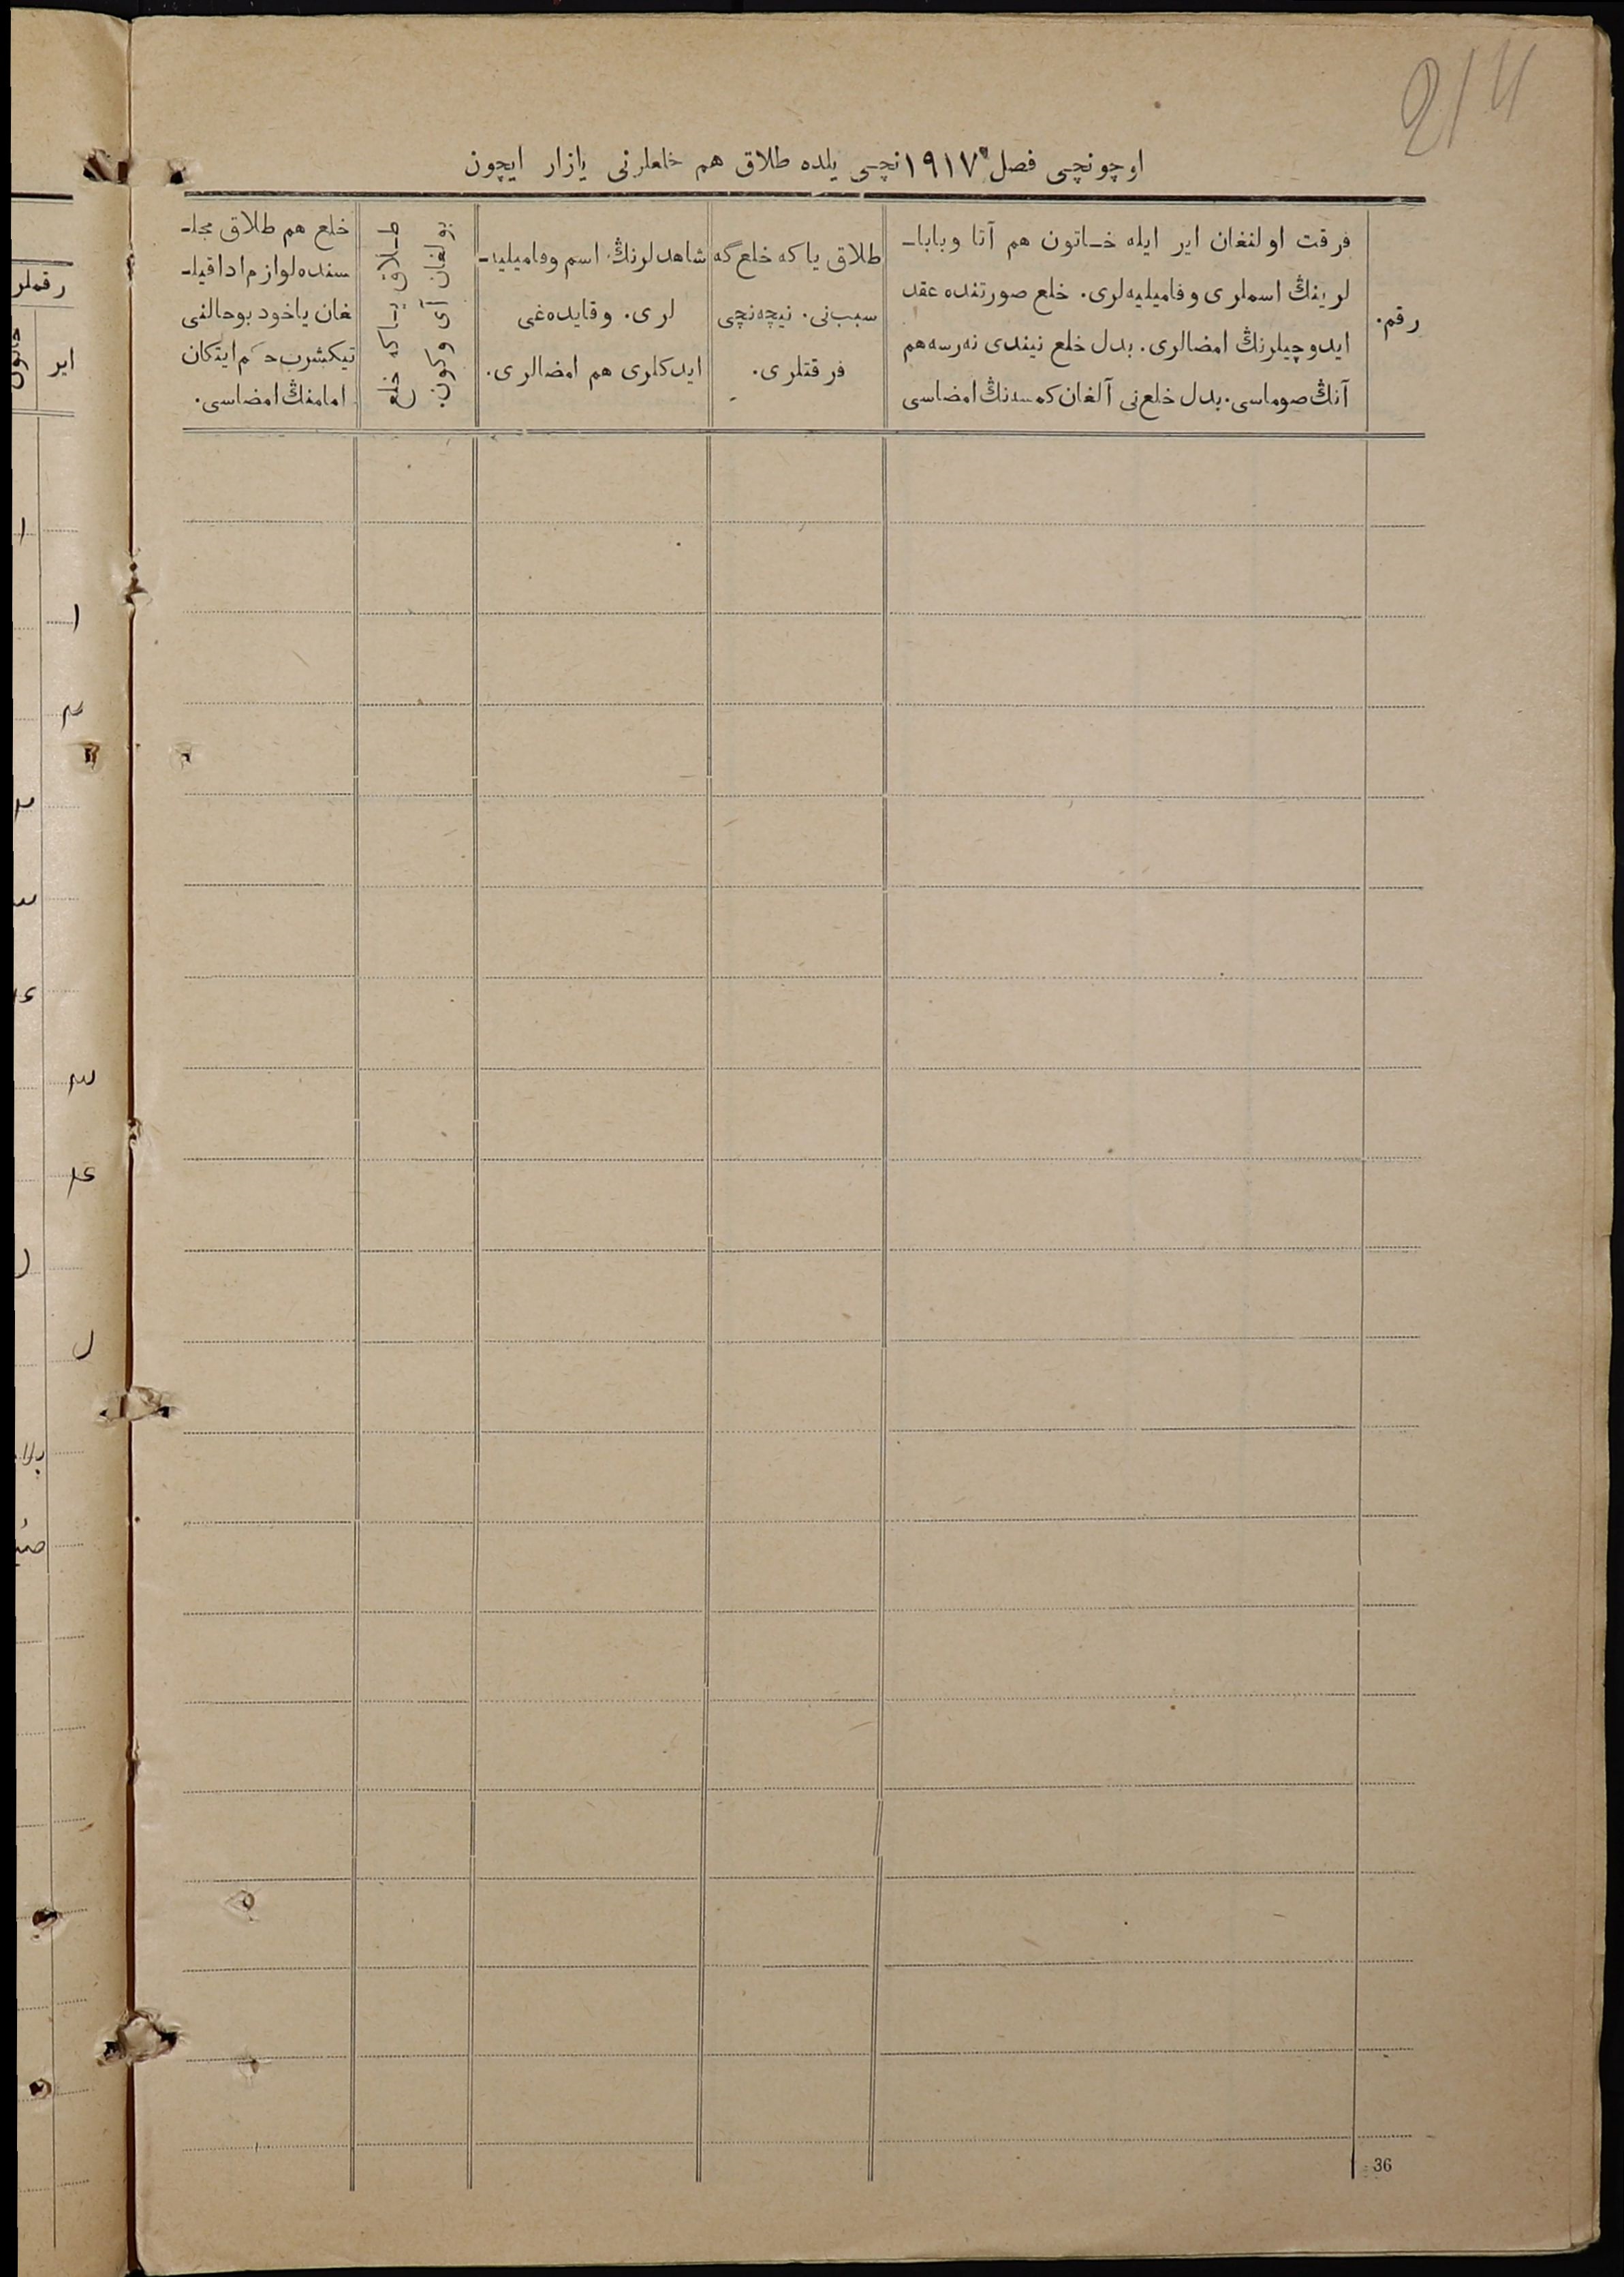 214
اوچونچی فصل ١٩١٧ نچی يلده طلاق هم خلعلرنی يازار ايچون
رقم.
فرقت اولنغان اير ايله خـاتون هم آتا وبابا‌ـ
لرينڭ اسملری وفاميليه‌لری. خلع صورتنده عقد
ايدوچيلرنڭ امضالری. بدل خلع نيندی نه‌رسه هم
آنڭ صوماسی. بدل خلع‌نی آلغان كمسه‌نڭ امضاسی
طلاق ياكه خلع گه
سبب‌نی. نيچه‌نچی
فرقتلری.
شاهدلرنڭ اسم وفاميليه‌ـ
لری. وقايده‌غی
ايدكلری هم امضالری.
طـلاق يـاكه خلع
بولغان آی وكون.
خلع هم طلاق مجلـ
سنده لوازم اداقيلـ
غان ياخود بوحالنی
تيكشرب حكم ايتكان
امامنڭ امضاسی.
رقملر
اير
خاتون
١
١
٢
٢
٣
٣
36